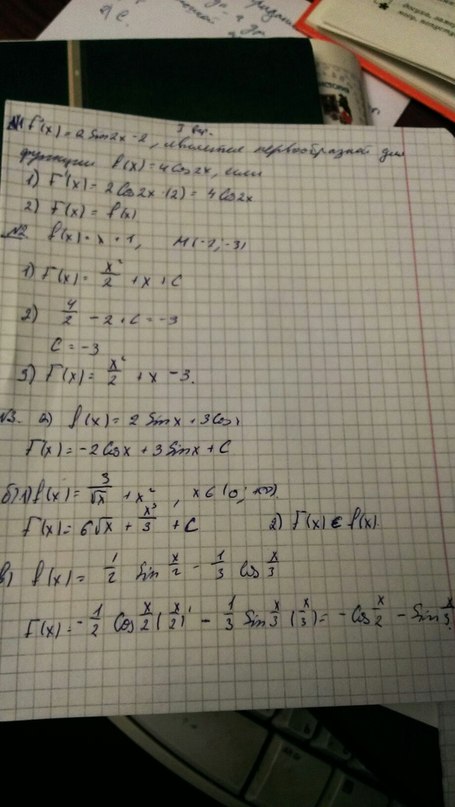 I вар.
№1 F(x) = 2 Sin2x - 2, является первообразной для
функции f(x) = 4 Cos2x, или
1) F'(x) = 2 Cos2x · (2) = 4 Cos2x
2) F'(x) = f(x)
№2 f(x) = x + 1, M(-2; -3)
1) F(x) = x²/2 + x + C
2) 4/2 - 2 + C = -3
C = -3
3) F(x) = x²/2 + x - 3.
№3. а) f(x) = 2 Sinx + 3 Cosx
F(x) = -2 Cosx + 3 Sinx + C
б) 1) f(x) = 3/√x + x², x ∈ (0; +∞).
F(x) = 6√x + x³/3 + C 2) F(x) ∈ f(x)
в) f(x) = 1/2 Sin x/2 - 1/3 Cos x/3
F(x) = -1/2 Cos x/2 (x/2)' - 1/3 Sin x/3 (x/3)' = -Cos x/2 - Sin x/3